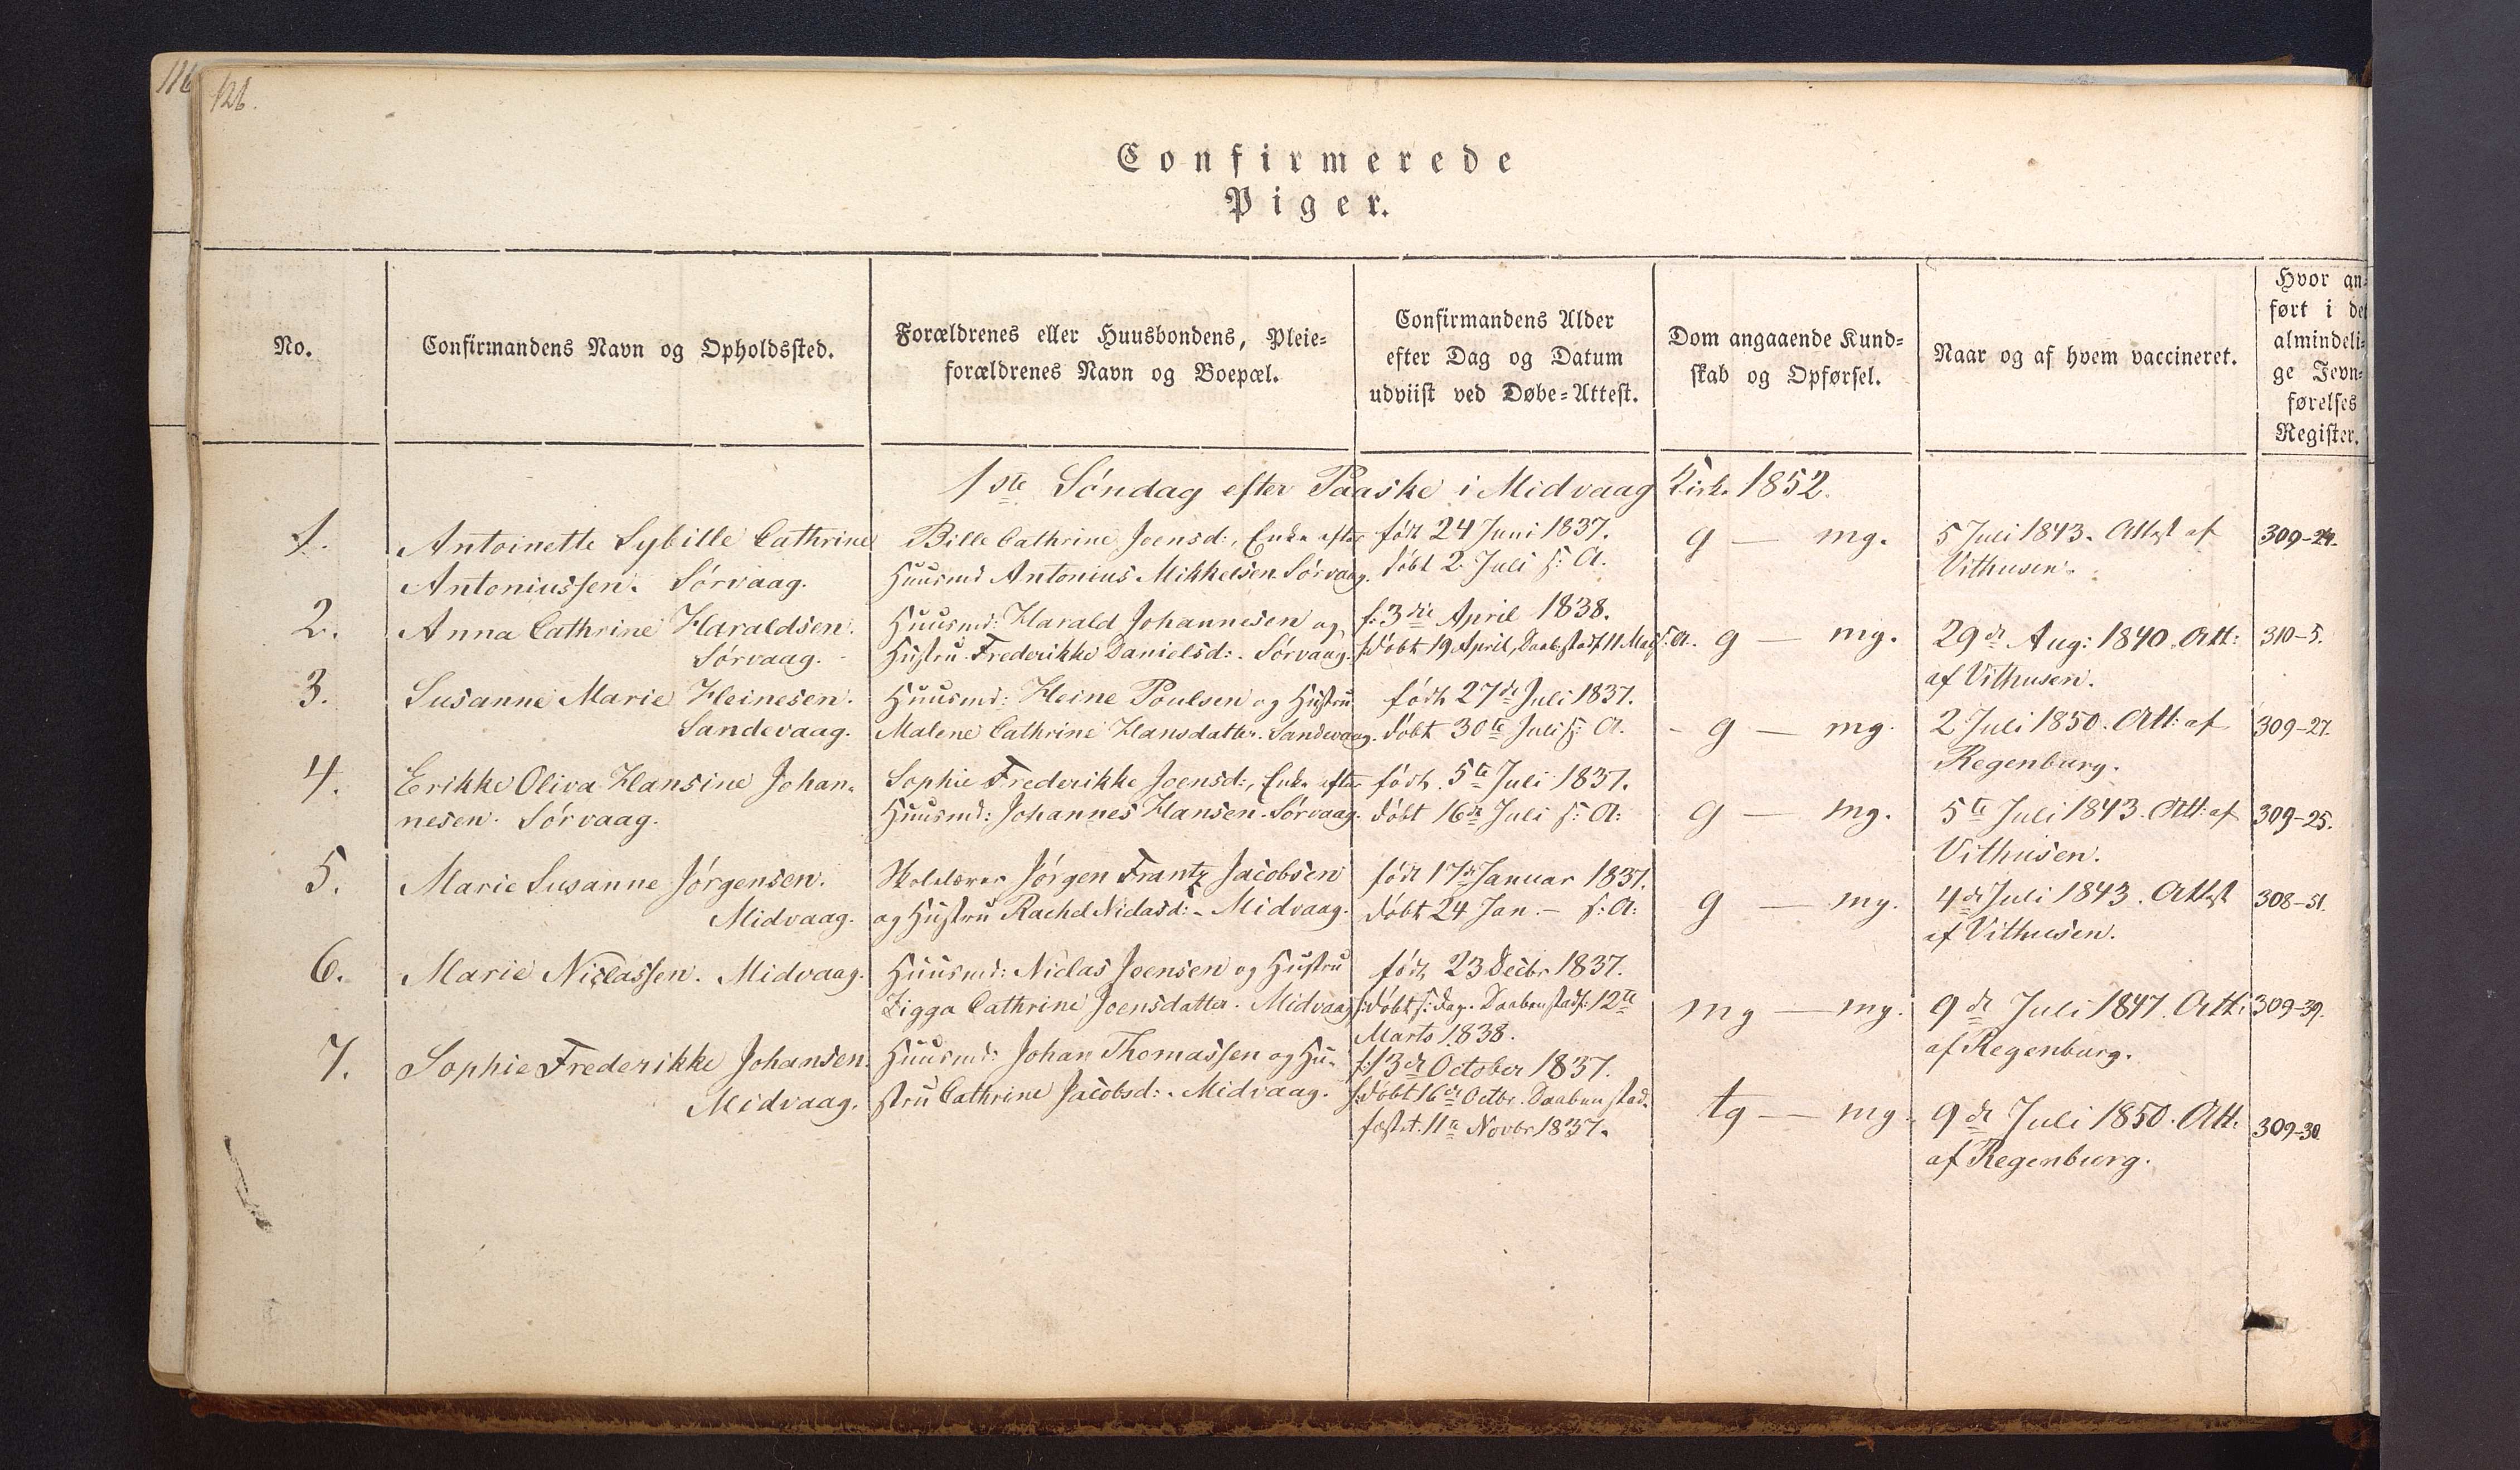 116
126.
Confirmerede
Piger.
No.
Confirmandens Navn og Opholdssted.
Forældrenes eller Huusbondens, Pleie=
forældrenes Navn og Boepæl.
Confirmandens Alder
efter Dag og Datum
udviist ved Døbe=Attest.
Dom angaaende Kund=
skab og Opførsel.
Naar og af hvem vaccineret.
Hvor an=
ført i det
almindeli=
ge Jevn=
førelses
Register.
1ste Søndag efter Paaske i Midvaag Kirke 1852.
1.
Antoinette Sybille Cathrine
Antoniussen. Sørvaag.
Bille Cathrine Joensd:, Enke efter
Huusmd Antonius Mikkelsen Sørvaag.
født 24 Juni 1837.
døbt 2. Juli s: A.
g — mg.
5 Juli 1843. Attest af
Vithusen.
309-24.
2.
Anna Cathrine Haraldsen.
Sørvaag.
Huusmd: Harald Johannesen og
Hustru Frederikke Danielsd:. Sørvaag.
f: 3die April 1838.
døbt 19 April, Daab stadf 11 Mai s: A.
g — mg.
29de Aug: 1840. Att:
af Vithusen.
310-5.
3.
Susanne Marie Heinesen.
Sandevaag.
Huusmd: Heine Poulsen og Hustru
Malene Cathrine Hansdatter. Sandevaag.
født 27de Juli 1837.
døbt 30te Juli s: A.
g — mg.
2 Juli 1850. Att: af
Regenburg.
309-27.
4.
Erikke Oliva Hansine Johan=
nesen. Sørvaag.
Sophie Frederikke Joensd:, Enke efter
Huusmd: Johannes Hansen. Sørvaag.
født 5te Juli 1837.
døbt 16de Juli s: A:
g — mg.
5te Juli 1843. Att: af
Vithusen.
309-25.
5.
Marie Susanne Jørgensen.
Midvaag.
Skolelærer Jørgen Frantz Jacobsen
og Hustru Rachel Niclasd:. Midvaag.
født 17de Januar 1837.
døbt 24 Jan. — s: A:
g — mg.
4de Juli 1843. Attest
af Vithusen.
308-51.
6.
Marie Niclassen. Midvaag.
Huusmd: Niclas Joensen og Hustru
Zigga Cathrine Joensdatter. Midvaag
født 23 Decbr 1837.
døbt s: Dag. Daaben stadf: 12te
Marts 1838.
mg — mg.
9de Juli 1847. Att:
af Regenburg.
309-39.
7.
Sophie Frederikke Johansen.
Midvaag.
Huusmd: Johan Thomassen og Hu=
stru Cathrine Jacobsd:. Midvaag.
f: 13de October 1837.
døbt 16de Octbr. Daaben stad=
fæstet 11te Novbr 1837.
tg — mg.
9de Juli 1850. Att:
af Regenburg.
309-30.